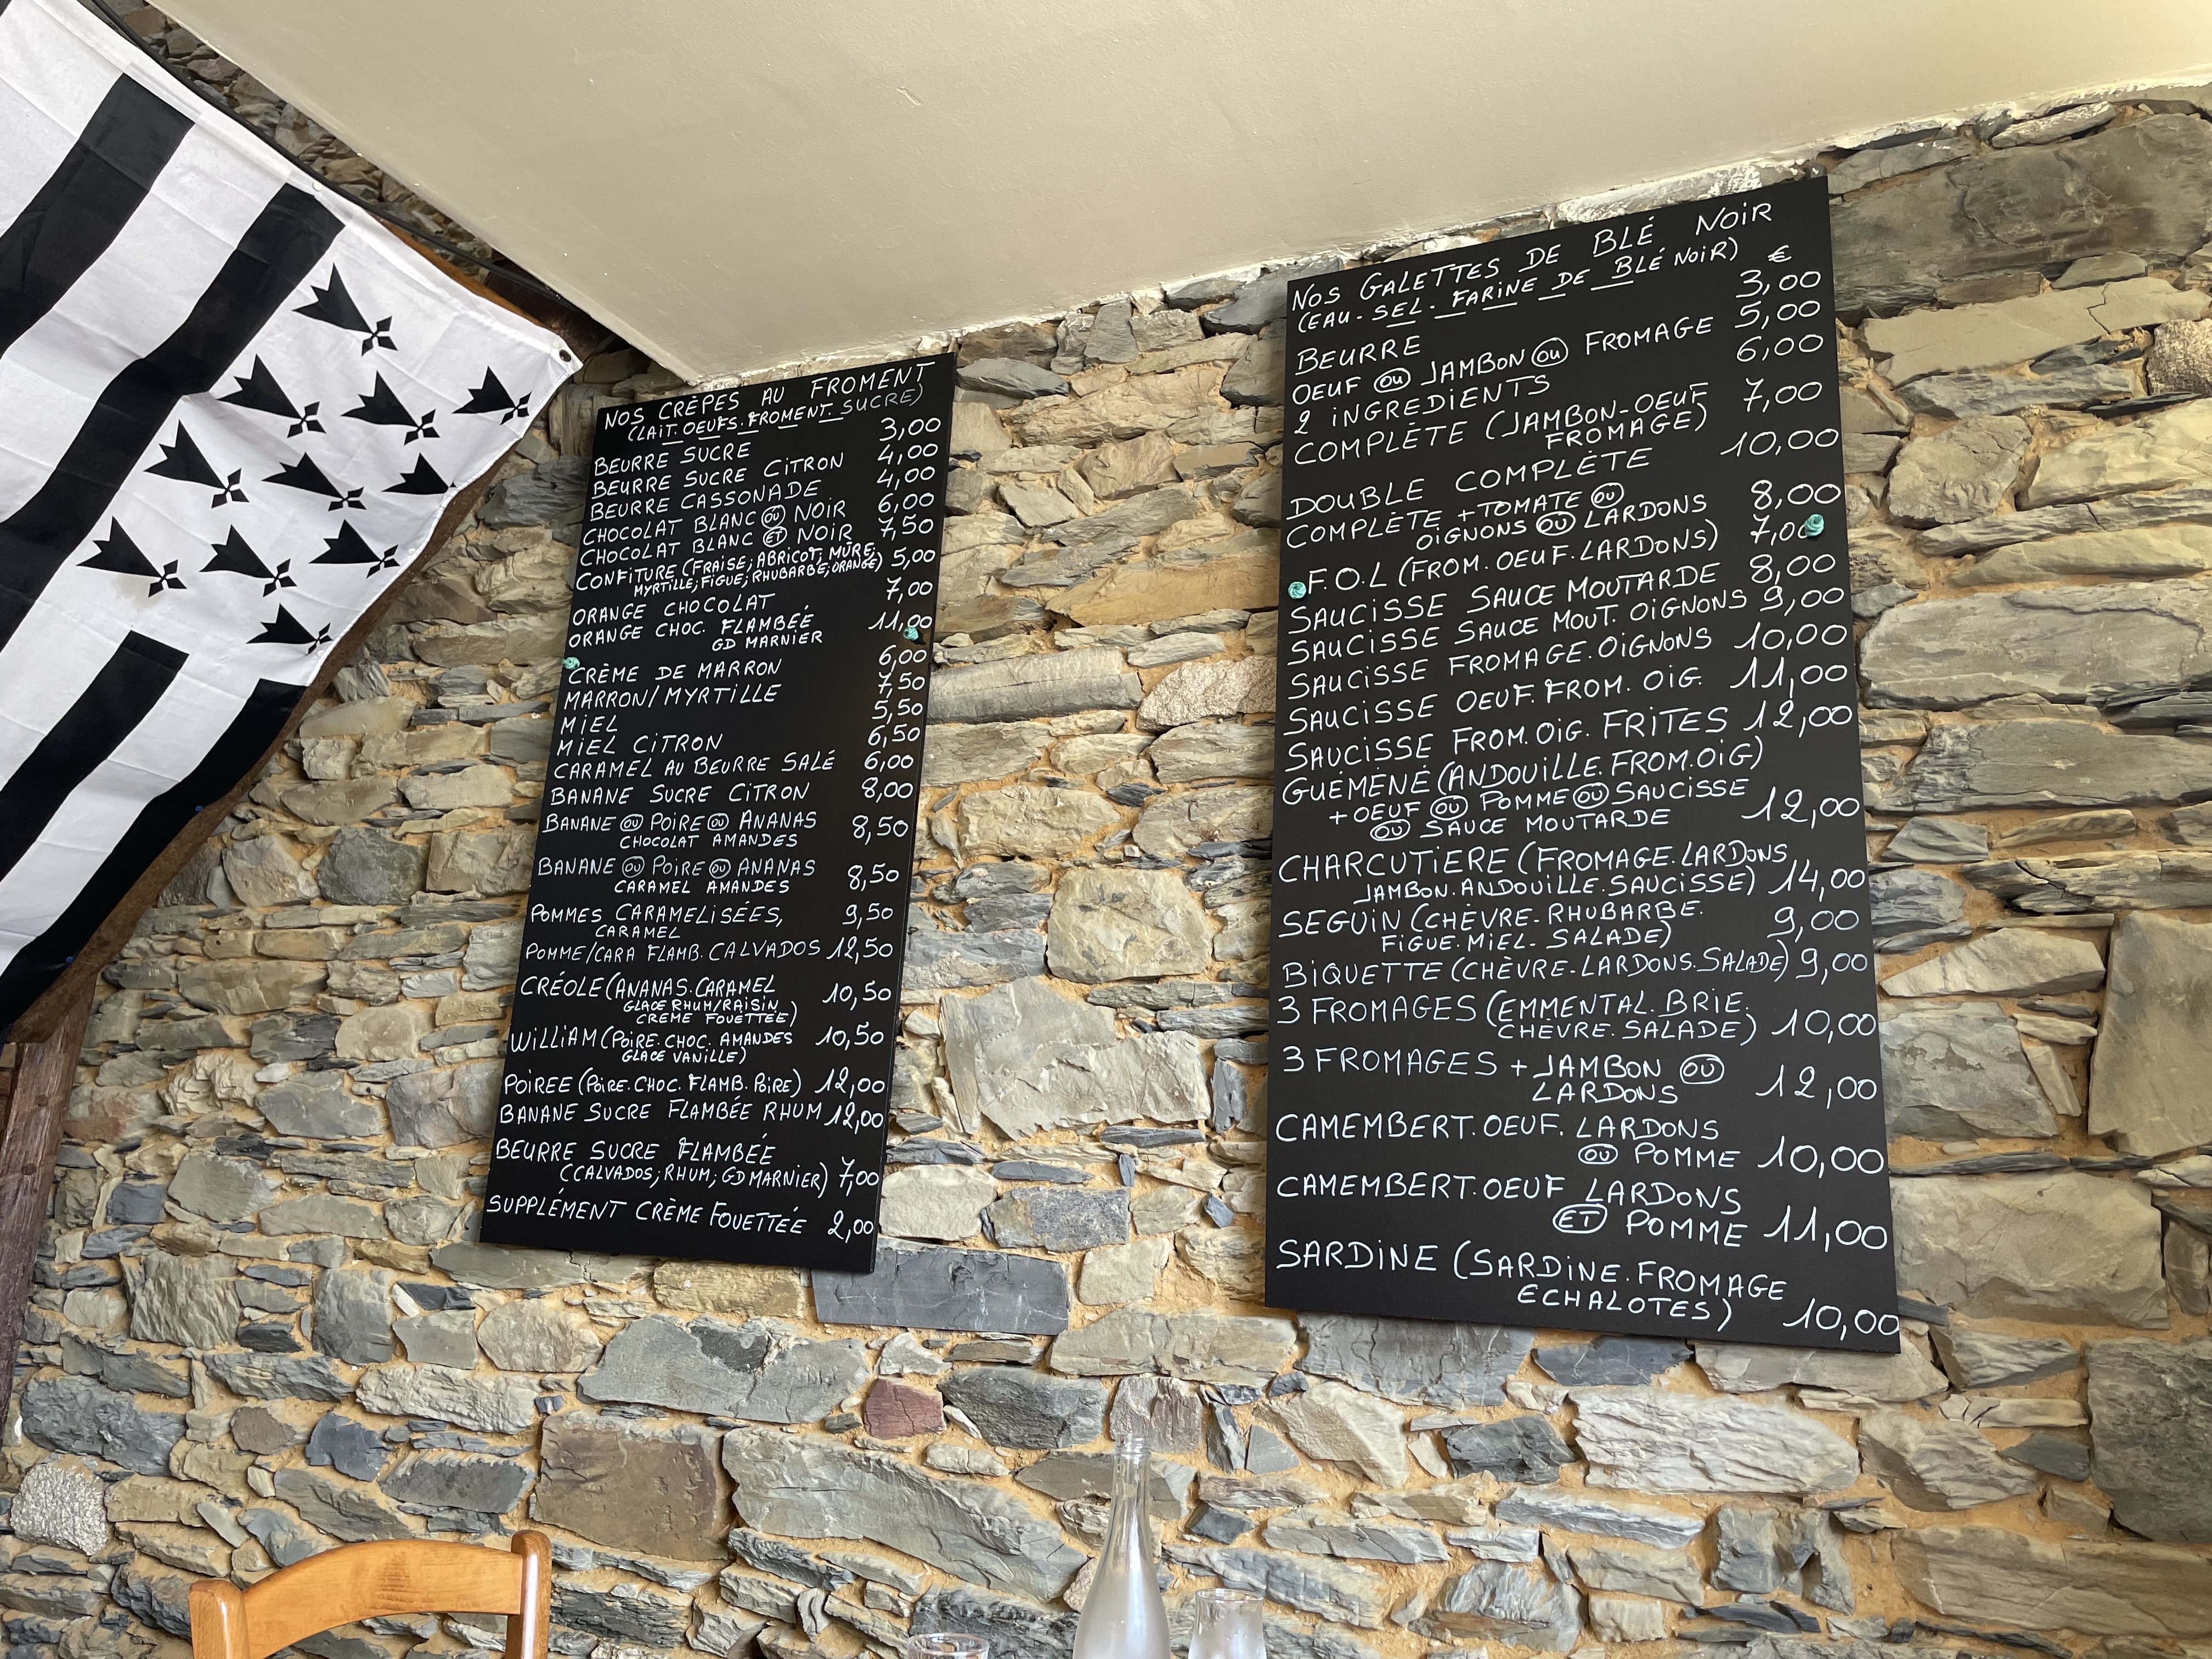 NOS CRÊPES AU FROMENT
(LAIT. OEUFS. FROMENT. SUCRE)
BEURRE SUCRE 3,00
BEURRE SUCRE CITRON 4,00
BEURRE CASSONADE 4,00
CHOCOLAT BLANC OU NOIR 6,00
CHOCOLAT BLANC ET NOIR 7,50
CONFITURE (FRAISE; ABRICOT; MÛRE; 5,00
MYRTILLE; FIGUE; RHUBARBE; ORANGE)
ORANGE CHOCOLAT 7,00
ORANGE CHOC. FLAMBÉE 11,00
GD MARNIER
CRÈME DE MARRON 6,00
MARRON/MYRTILLE 7,50
MIEL 5,50
MIEL CITRON 6,50
CARAMEL AU BEURRE SALÉ 6,00
BANANE SUCRE CITRON 8,00
BANANE OU POIRE OU ANANAS 8,50
CHOCOLAT AMANDES
BANANE OU POIRE OU ANANAS 8,50
CARAMEL AMANDES
POMMES CARAMELISÉES, 9,50
CARAMEL
POMME/CARA FLAMB. CALVADOS 12,50
CRÉOLE (ANANAS. CARAMEL 10,50
GLACE RHUM/RAISIN
CREME FOUETTÉE)
WILLIAM (POIRE. CHOC. AMANDES 10,50
GLACE VANILLE)
POIREE (POIRE. CHOC. FLAMB. POIRE) 12,00
BANANE SUCRE FLAMBÉE RHUM 12,00
BEURRE SUCRE FLAMBÉE
(CALVADOS; RHUM; GD MARNIER) 7,00
SUPPLÉMENT CRÈME FOUETTÉE 2,00
NOS GALETTES DE BLÉ NOIR
(EAU - SEL - FARINE DE BLÉ NOIR) €
BEURRE 3,00
OEUF OU JAMBON OU FROMAGE 5,00
2 INGREDIENTS 6,00
COMPLÈTE (JAMBON-OEUF 7,00
FROMAGE)
DOUBLE COMPLÈTE 10,00
COMPLÈTE + TOMATE OU
OIGNONS OU LARDONS 8,00
F.O.L (FROM. OEUF. LARDONS) 7,00
SAUCISSE SAUCE MOUTARDE 8,00
SAUCISSE SAUCE MOUT. OIGNONS 9,00
SAUCISSE FROMAGE. OIGNONS 10,00
SAUCISSE OEUF. FROM. OIG. 11,00
SAUCISSE FROM. OIG. FRITES 12,00
GUÉMÉNÉ (ANDOUILLE. FROM. OIG)
+ OEUF OU POMME OU SAUCISSE
OU SAUCE MOUTARDE 12,00
CHARCUTIERE (FROMAGE. LARDONS
JAMBON. ANDOUILLE. SAUCISSE) 14,00
SEGUIN (CHÈVRE - RHUBARBE. 9,00
FIGUE. MIEL - SALADE)
BIQUETTE (CHÈVRE - LARDONS. SALADE) 9,00
3 FROMAGES (EMMENTAL. BRIE.
CHÈVRE. SALADE) 10,00
3 FROMAGES + JAMBON OU
LARDONS 12,00
CAMEMBERT. OEUF. LARDONS
OU POMME 10,00
CAMEMBERT. OEUF LARDONS
ET POMME 11,00
SARDINE (SARDINE. FROMAGE
ECHALOTES) 10,00